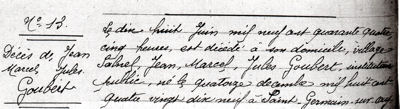 N° 13.
Décès de Jean
Marcel, Jules
Goubert
Le dix huit Juin mil neuf cent quarante quatre
cinq heures, est décédé à son domicile, village
Jean, Marcel, Jules Goubert, instituteur
public, né le quatorze décembre mil huit cent
quatre vingt dix neuf à Saint Germain sur ay